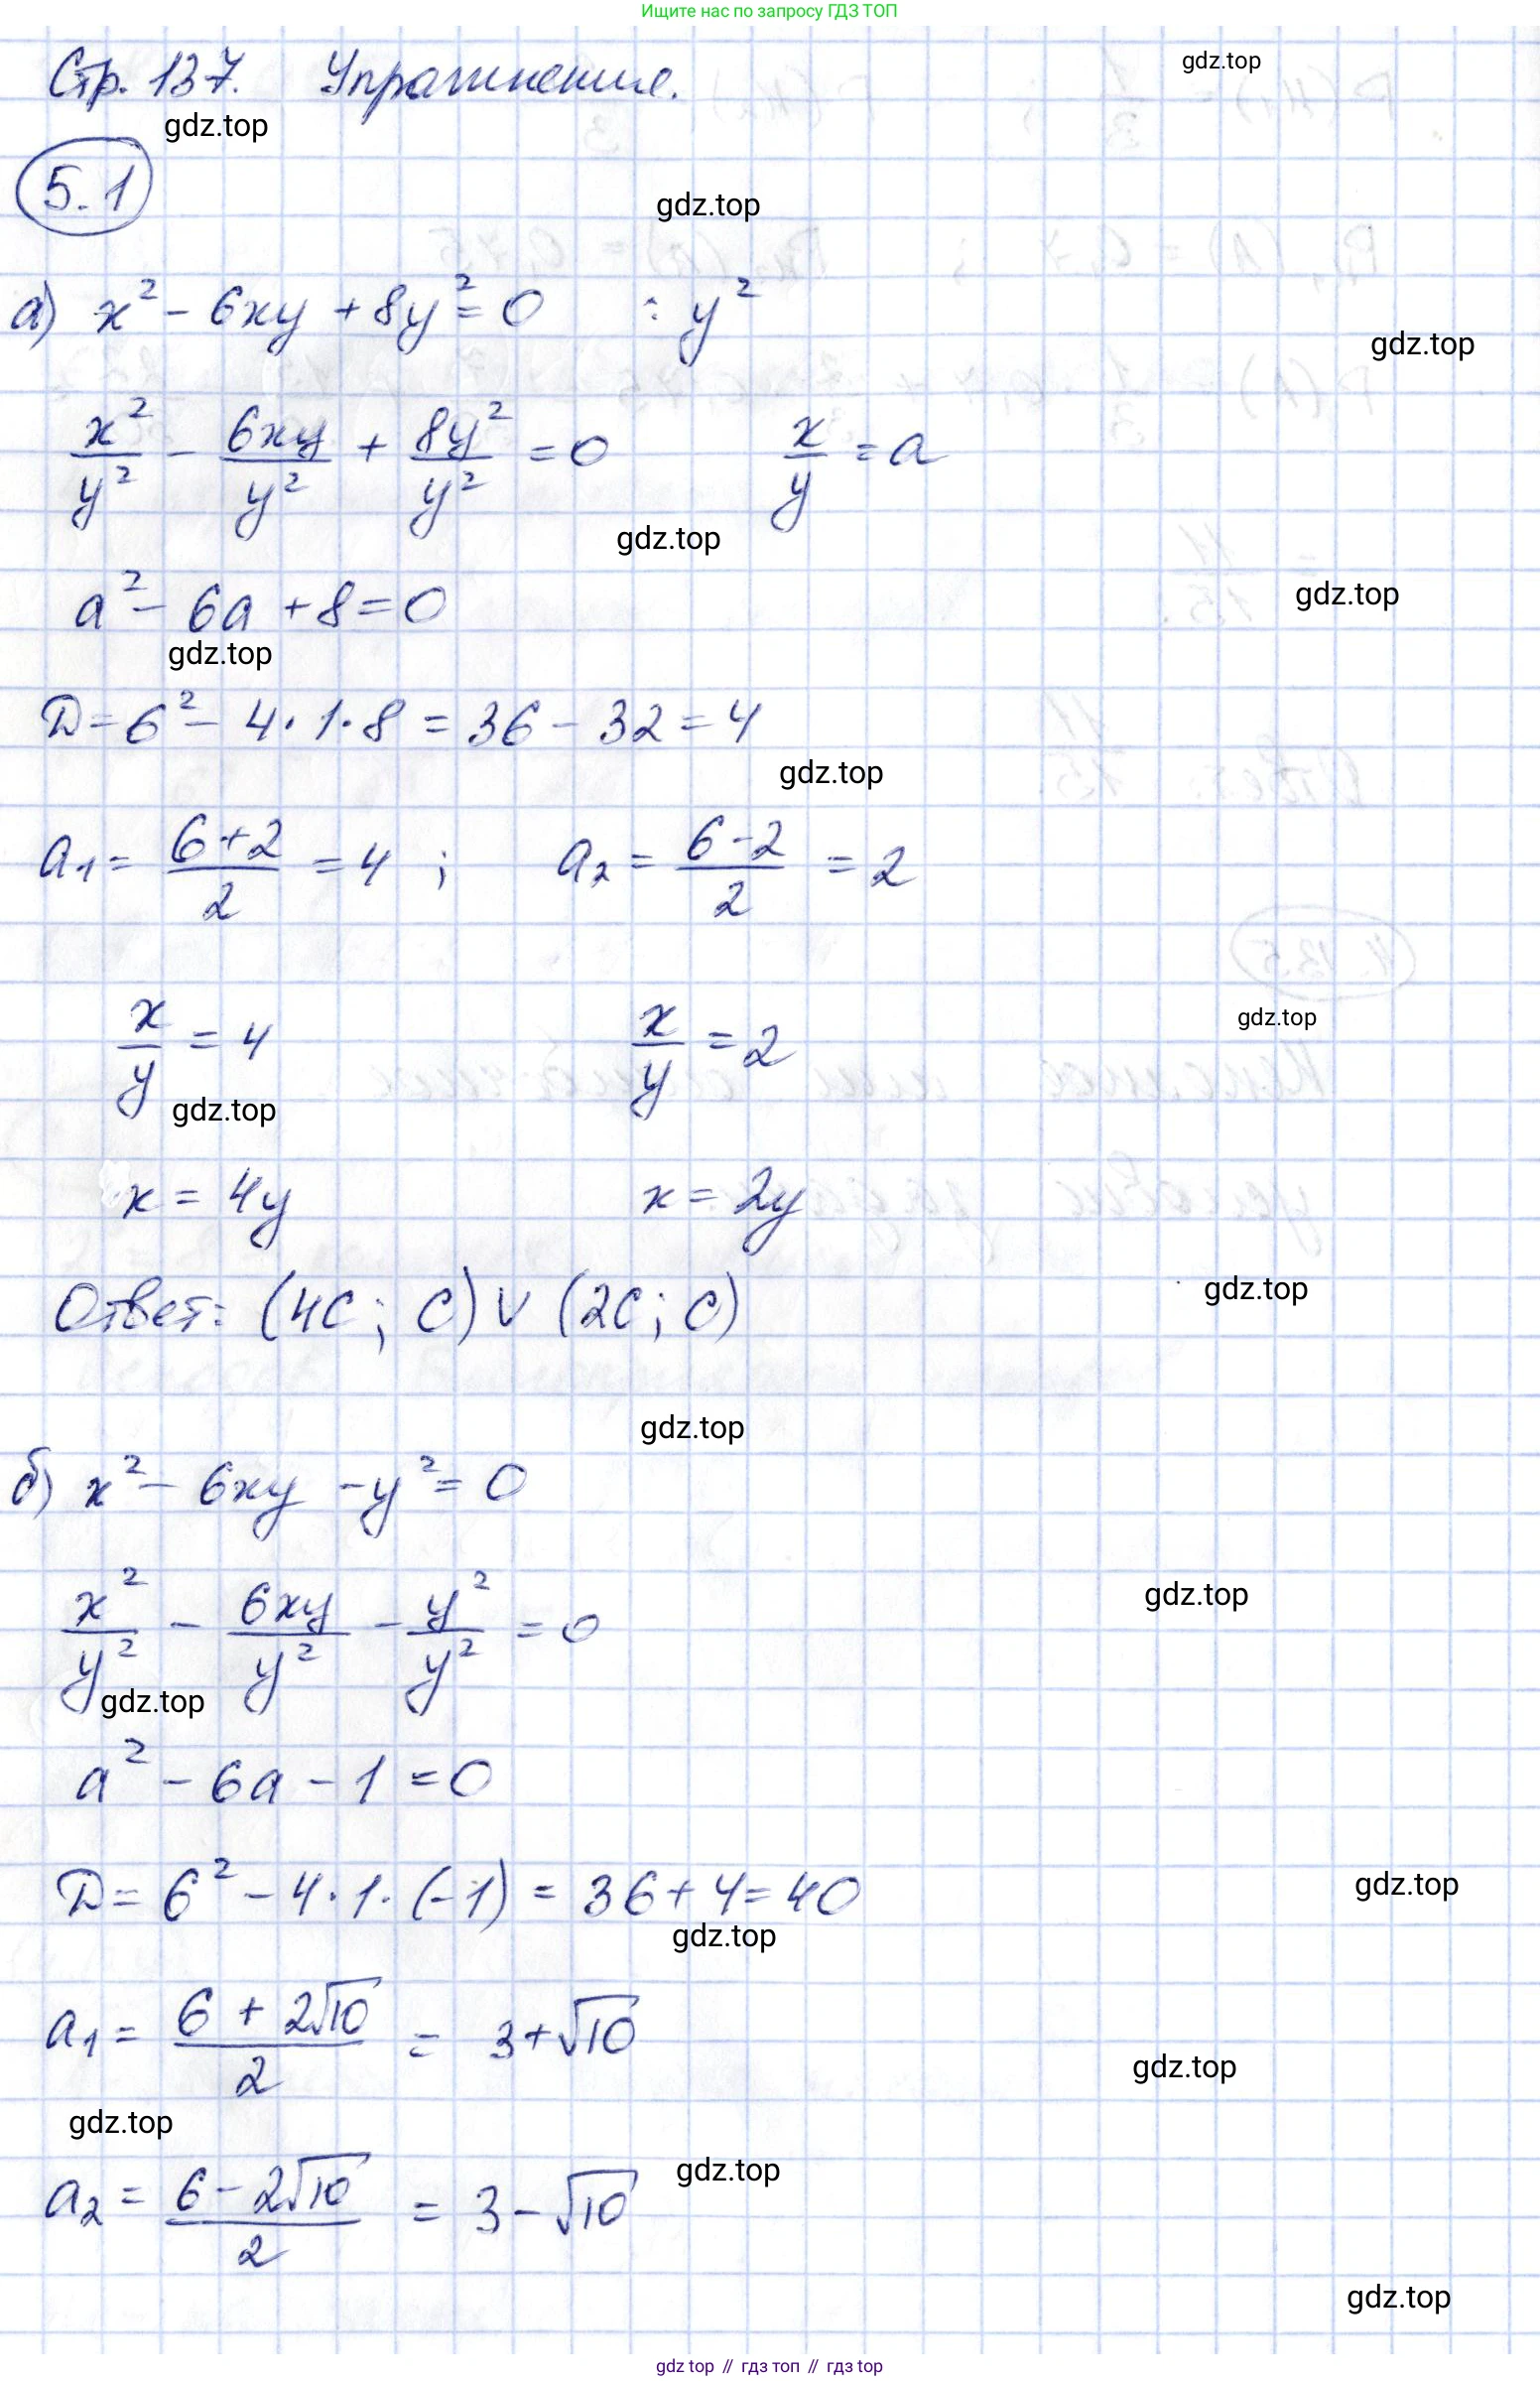 Ищите нас по запросу ГДЗ ТОП
Стр. 137. Упражнения.
gdz.top
gdz.top
5.1
gdz.top
а) x² - 6xy + 8y² = 0 : y²
gdz.top
x²/y² - 6xy/y² + 8y²/y² = 0 x/y = a
gdz.top
a² - 6a + 8 = 0
gdz.top
gdz.top
D = 6² - 4·1·8 = 36 - 32 = 4
gdz.top
a₁ = (6+2)/2 = 4 ; a₂ = (6-2)/2 = 2
gdz.top
x/y = 4 x/y = 2
gdz.top
x = 4y x = 2y
gdz.top
Ответ: (4C; C) ∨ (2C; C)
gdz.top
б) x² - 6xy - y² = 0
gdz.top
x²/y² - 6xy/y² - y²/y² = 0
gdz.top
a² - 6a - 1 = 0
D = 6² - 4·1·(-1) = 36 + 4 = 40
gdz.top
gdz.top
a₁ = (6 + 2√10)/2 = 3 + √10
gdz.top
gdz.top
gdz.top
a₂ = (6 - 2√10)/2 = 3 - √10
gdz.top
gdz top // гдз топ // gdz top